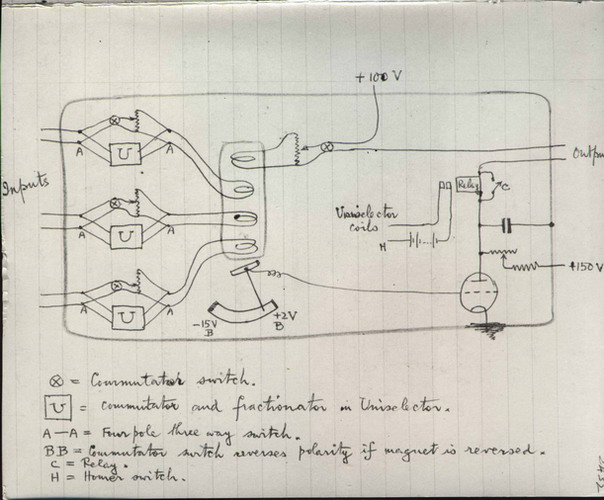 +100 V
Inputs
Output
A
A
A
A
A
A
U
U
U
Relay
C
Uniselector
coils
H
+150 V
-15V
B
+2V
B
⊗ = Commutator switch.
U = commutator and fractionator in Uniselector.
A—A = Four pole three way switch.
BB = Commutator switch reverses polarity if magnet is reversed.
C = Relay.
H = Homer switch.